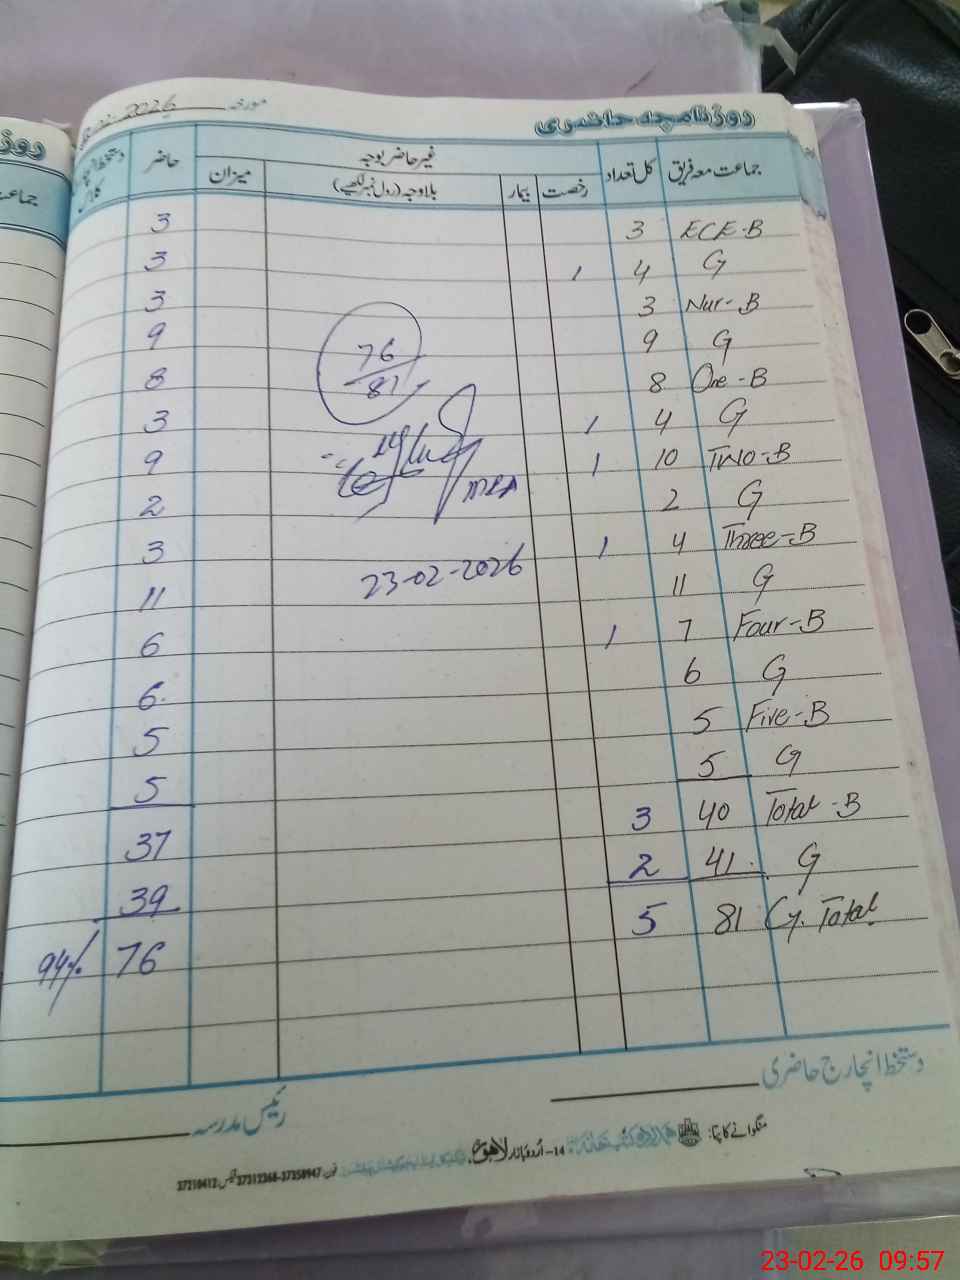 مورخہ 2026
روزنامچہ حاضری
جماعت معہ فریق کل تعداد غیر حاضر بوجہ حاضر دستخط انچارج کلاس
رخصت بیمار بلاوجہ (رول نمبر لکھیے) میزان
ECE-B 3 3
G 4 1 3
Nur-B 3 3
G 9 9
One-B 8 8
G 4 1 3
Two-B 10 1 9
G 2 2
Three-B 4 1 3
G 11 11
Four-B 7 1 6
G 6 6
Five-B 5 5
G 5 5
Total-B 40 3 37
G 41 2 39
G. Total 81 5 76 94%
76
81
MEA
23-02-2026
دستخط انچارج حاضری
رئیس مدرسہ
منگوانے کا پتا:
14-اُردو بازار لاہور
فون: 37312368-37350947 فیکس: 37210412
روز
جماعت
23-02-26 09:57